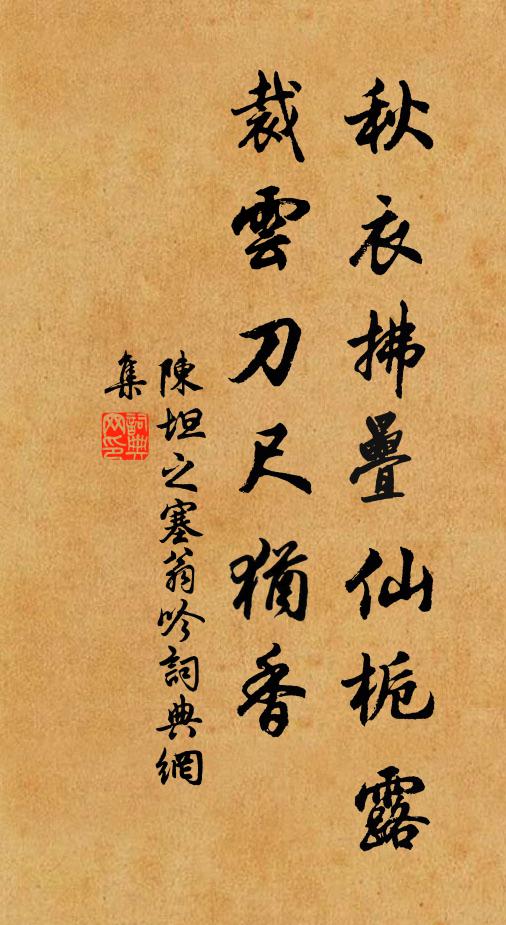 秋衣拂疊仙梔露
裁雲刀尺猶香
陳坦之塞翁吟詞典網
集
詞典
网印